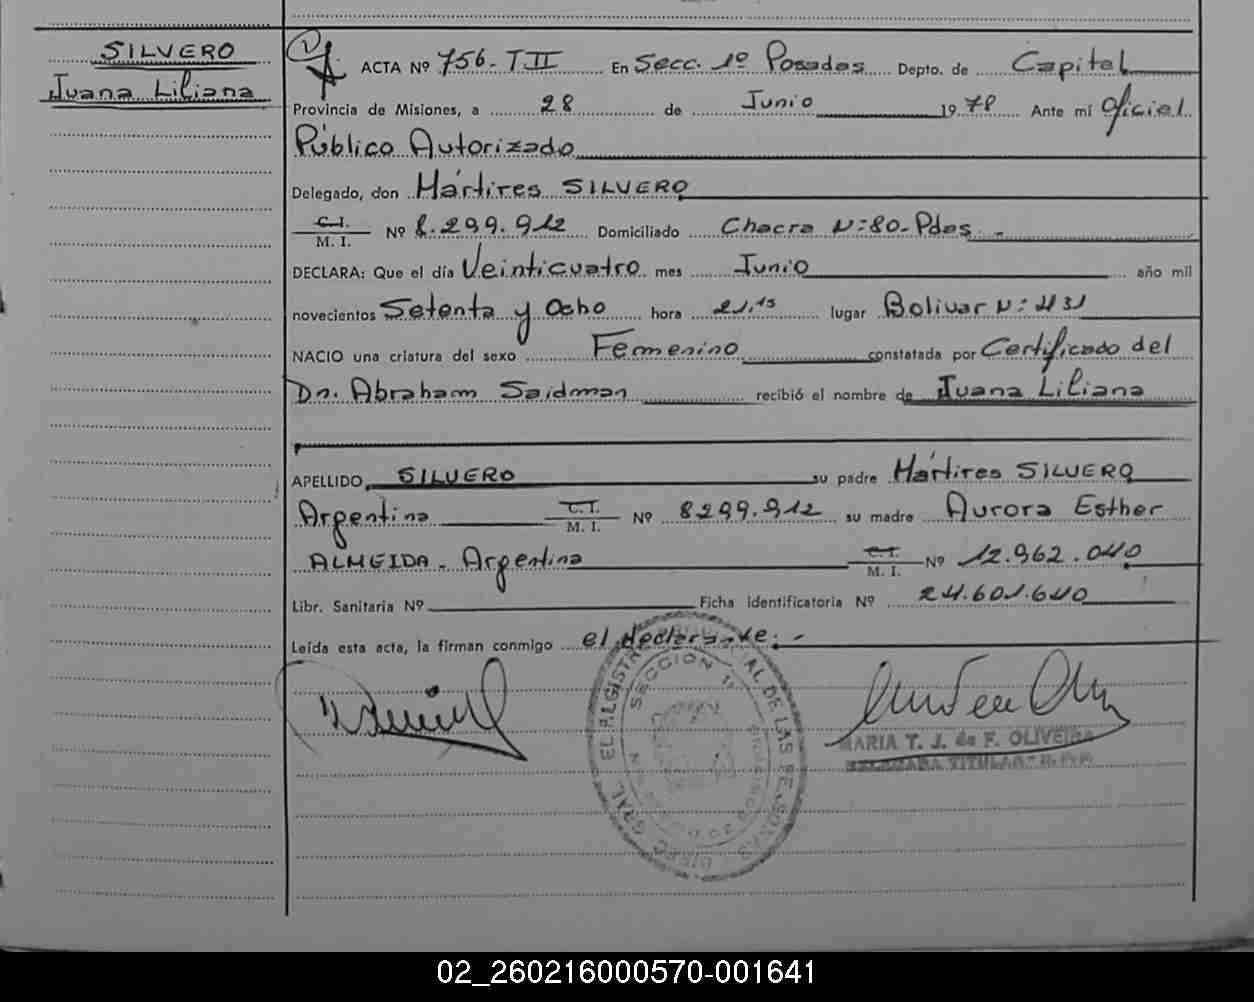 SILVERO
Juana Liliana
ACTA Nº 756- T II En Secc. 1º Posadas Depto. de Capital
Provincia de Misiones, a 28 de Junio 1978 Ante mí Oficial
Público Autorizado
Delegado, don Mártires SILVERO
C.I. M. I. Nº 8.299.912 Domiciliado Chacra N:80-Pdas. -
DECLARA: Que el día Veinticuatro mes Junio año mil
novecientos Setenta y Ocho hora 21,15 lugar Bolivar N: 431
NACIO una criatura del sexo Femenino constatada por Certificado del
Dr. Abraham Saidman recibió el nombre de Juana Liliana
APELLIDO SILVERO su padre Mártires SILVERO
Argentina C.I. M. I. Nº 8299.912 su madre Aurora Esther
ALMEIDA - Argentina C.I. M. I. Nº 12.962.040
Libr. Sanitaria Nº Ficha identificatoria Nº 24.601.640
Leída esta acta, la firman conmigo el declarante. -
SECCION 1ª
MARIA T. J. de F. OLIVEIRA
DELEGADA TITULAR
02_260216000570-001641